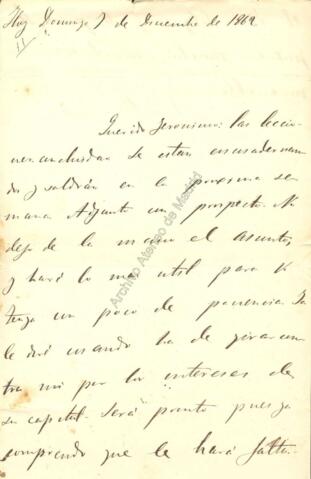 Hoy Domingo 7 de Diciembre de 1862
Querido Jeronimo: las leccio
nes concluidas se estan encuadernan
do y saldrán en la proxima se
mana Adjunto un prospecto. No
dejo de la mano el asunto,
y haré lo mas util para V.
tenga un poco de paciencia. Ya
le diré cuando ha de girar con
tra mi por los intereses de
su capital. Será pronto pues ya
comprendo que le hará falta.
Archivo Ateneo de Madrid